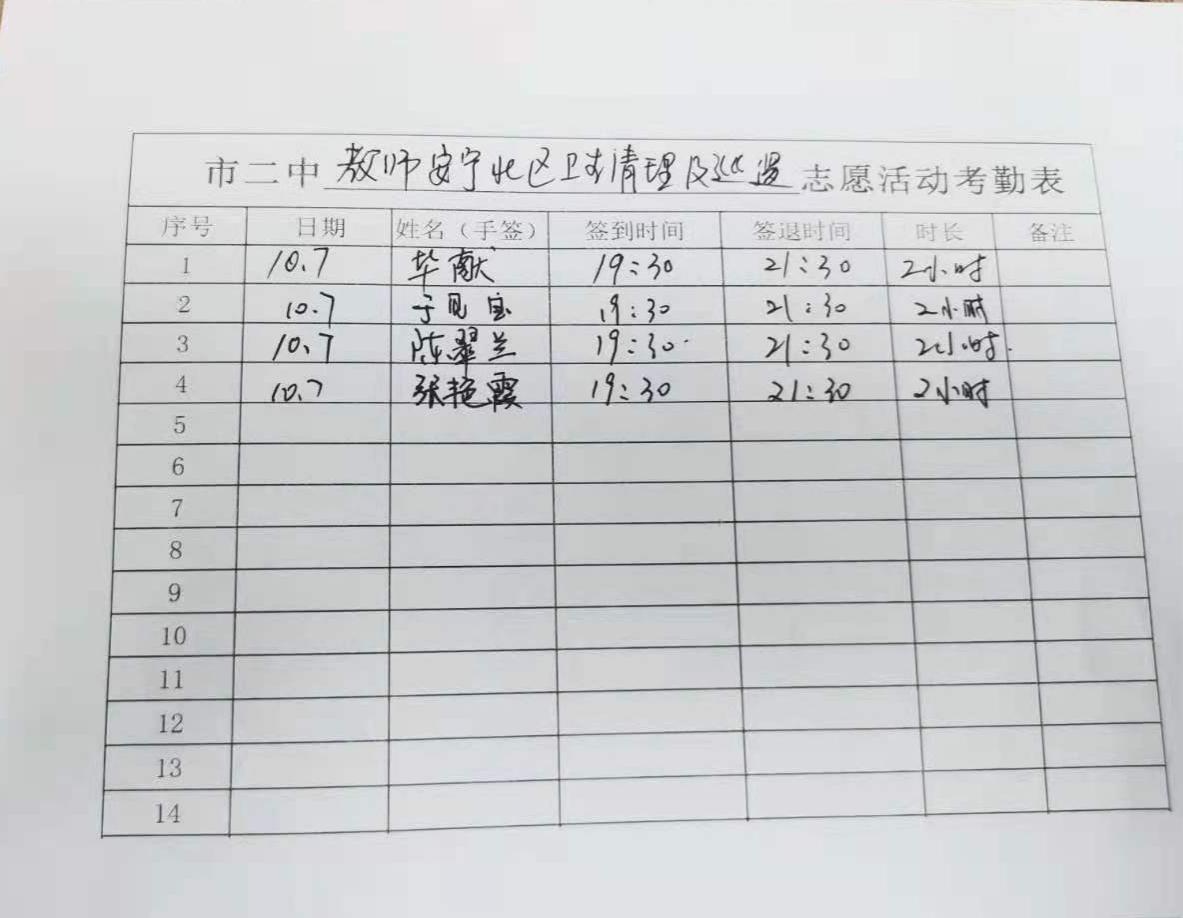 市二中教师安宁北区卫生清理及巡逻志愿活动考勤表
序号 日期 姓名（手签） 签到时间 签退时间 时长 备注
1 10.7 毕献 19:30 21:30 2小时
2 10.7 于见宝 19:30 21:30 2小时
3 10.7 陈翠兰 19:30 21:30 2小时
4 10.7 张艳霞 19:30 21:30 2小时
5
6
7
8
9
10
11
12
13
14